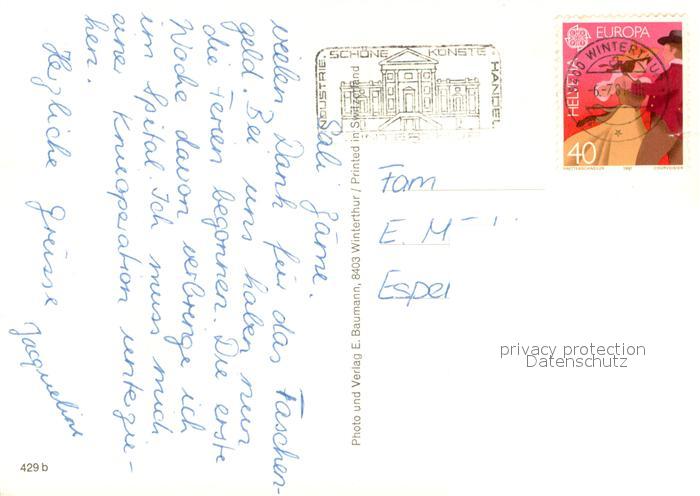 Sali zäme.
vielen Dank für das Taschen-
geld. Bei uns haben nun
die Ferien begonnen. Die erste
Woche davon verbringe ich
im Spital. Ich muss mich
einer Knieoperation unterzie-
hen.
Herzliche Grüsse
Jacqueline
429 b
Photo und Verlag E. Baumann, 8403 Winterthur / Printed in Switzerland
INDUSTRIE · SCHÖNE KÜNSTE · HANDEL
8400 WINTERTHUR
-6.-7.81
EUROPA
HELVETIA
40
1981
COURVOISIER
Fam
E. M
Espel
privacy protection
Datenschutz